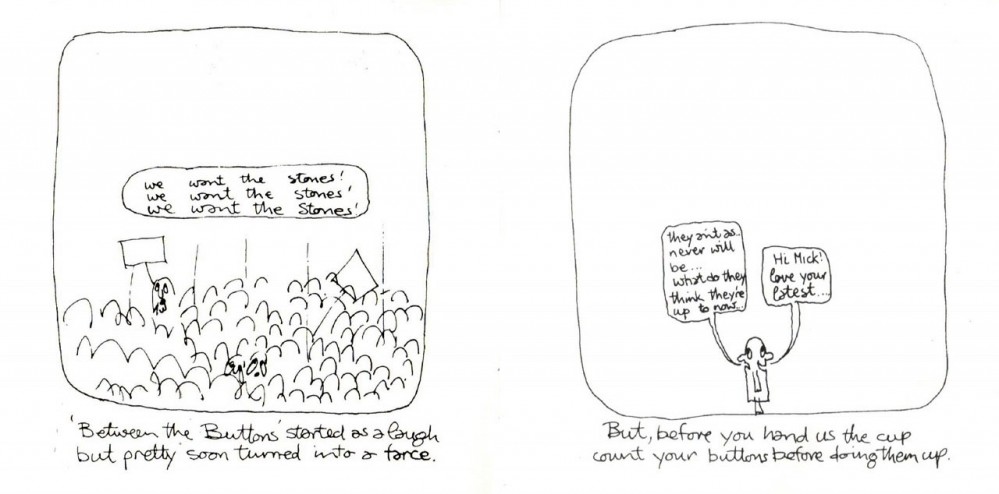 we want the stones!
we want the stones!
we want the stones!
'Between the Buttons' started as a laugh
but pretty soon turned into a farce.
they ain't as..
never will
be...
what do they
think they're
up to now...
Hi Mick!
love your
latest...
But, before you hand us the cup
count your buttons before doing them up.